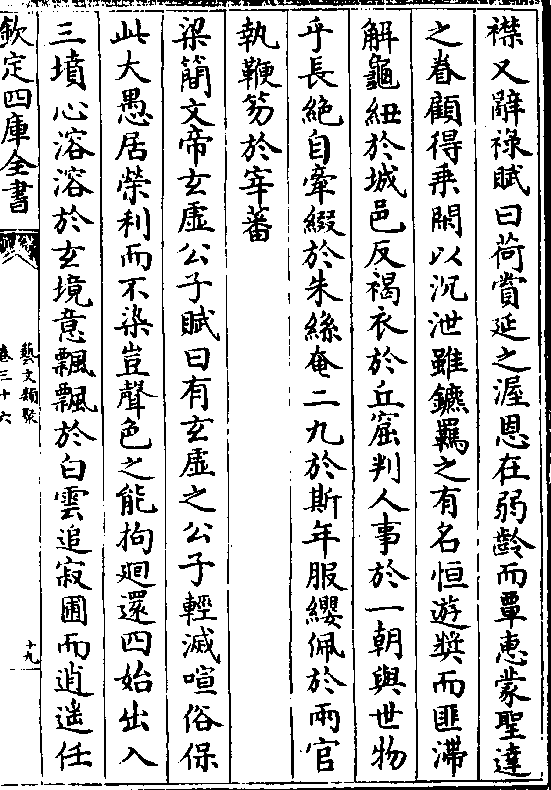 襟又辭祿賦曰荷賞延之渥恩在弱齡而覃惠蒙聖達
之眷顧得乗閑以沉泄雖鑣羈之有名恒遊奬而匪滯
解龜紐於城邑反褐衣於丘窟判人事於一朝與世物
乎長絶自牽綴於朱絲奄二九於斯年服纓佩於兩官
執鞭笏於宰蕃
梁簡文帝玄虛公子賦曰有玄虛之公子輕減喧俗保
此大愚居榮利而不染豈聲色之能拘廻還四始出入
三墳心溶溶於玄境意飄飄於白雲追寂圃而逍遙任
欽定四庫全書
藝文類聚
卷三十六
十九